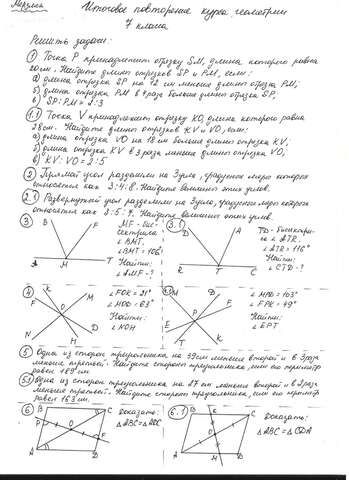 Итоговое повторение курса геометрии
7 класса
Решить задачи:
① Точка P принадлежит отрезку SM, длина которого равна
20см. Найдите длины отрезков SP и PM, если:
а) длина отрезка SP на 12 см меньше длины отрезка PM;
б) длина отрезка PM в 4 раза больше длины отрезка SP;
в) SP:PM = 2:3
①.1 Точка V принадлежит отрезку KO, длина которого равна
28см. Найдите длины отрезков KV и VO, если:
а) длина отрезка VO на 18 см больше длины отрезка KV;
б) длина отрезка KV в 3 раза меньше длины отрезка VO;
в) KV:VO = 2:5
② Прямой угол разделили на 3 угла, градусные меры которых
относятся как 3:4:8. Найдите величины этих углов.
2.1 Развернутый угол разделили на 3 угла, градусные меры которых
относятся как 3:5:7. Найдите величины этих углов.
③ B F A M T
MF - биссектриса
∠BMT.
∠BMT=106°
Найти:
∠AMF-?
3.1 D A R T C
TD- биссектриса
∠ATR.
∠ATR=116°
Найти:
∠CTD-?
④ K M F O N H D
∠FOK=21°
∠MOD=63°
Найти:
∠NOH
4.1 M D F P E T K
∠MPD=103°
∠FPK=49°
Найти:
∠EPT
⑤ Одна из сторон треугольника на 39см меньше второй и в 3 раза
меньше третьей. Найдите стороны треугольника, если его периметр
равен 189см.
5.1 Одна из сторон треугольника на 27см меньше второй и в 2 раза
меньше третьей. Найдите стороны треугольника, если его периметр
равен 163см.
⑥ B C P O F A D
Доказать:
△ABC=△ADC
6.1 B K C O A M D
Доказать:
△ABC=△CDA